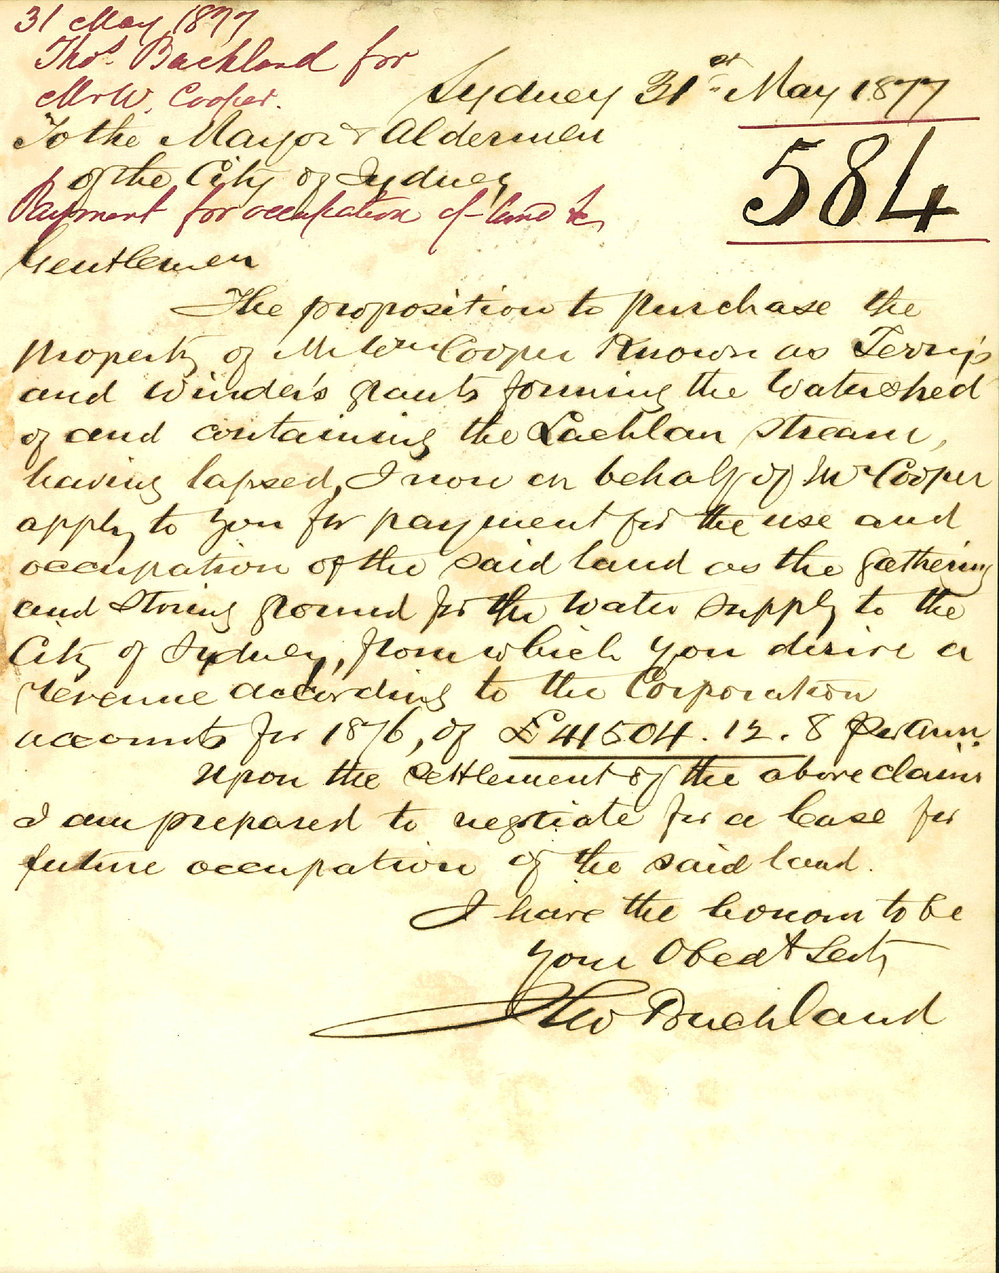 31 May 1877
Thos. Buckland for
Mr W. Cooper.
Sydney 31st May 1877
584
To the Mayor & Aldermen
of the City of Sydney
Payment for occupation of land &c
Gentlemen
The proposition to purchase the
property of Mr Wm Cooper Known as Terry's
and Winder's grants forming the Watershed
of and containing the Lachlan stream,
having lapsed, I now on behalf of Mr Cooper
apply to you for payment for the use and
occupation of the said land as the gathering
and storing ground for the Water supply to the
City of Sydney, from which you derive a
revenue according to the Corporation
accounts for 1876, of £41504.12.8 per ann.
Upon the settlement of the above claim
I am prepared to negotiate for a lease for
future occupation of the said land.
I have the honour to be
your Obedt Servt
Thos Buckland